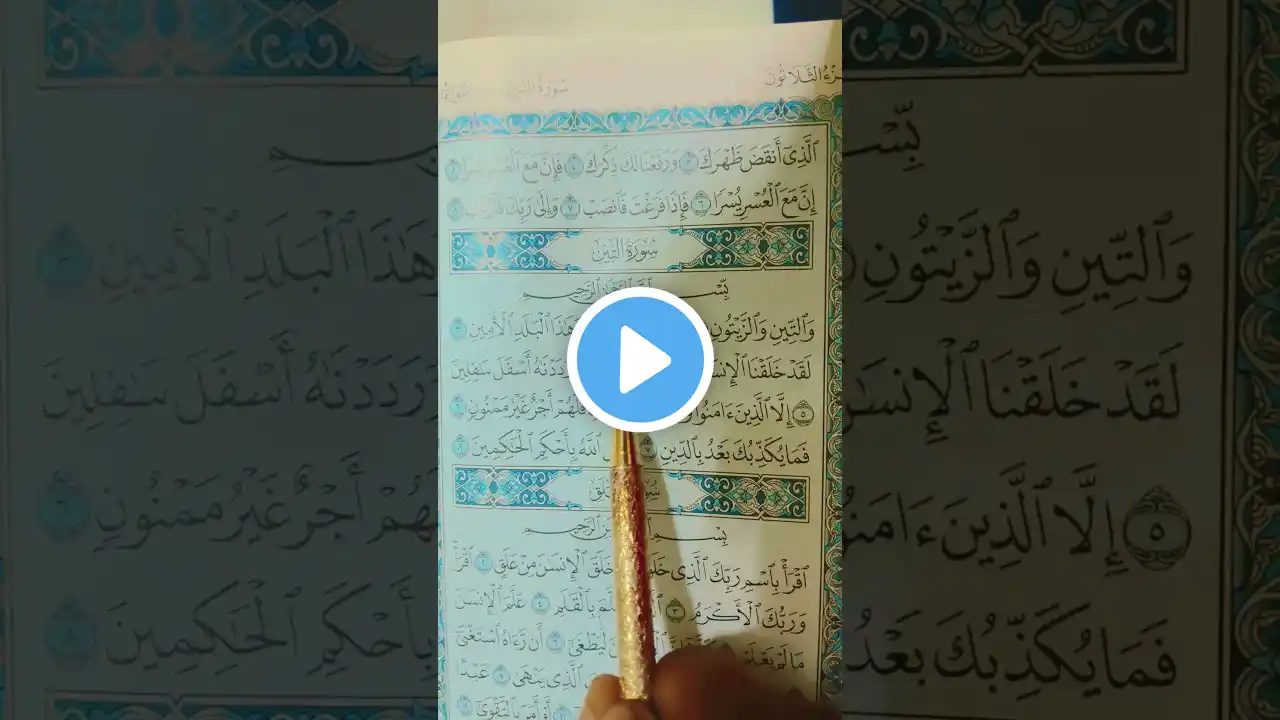 الجُزْءُ الثَّلَاثُونَ سُورَةُ التِّينِ
ٱلَّذِىٓ أَنقَضَ ظَهْرَكَ ٣ وَرَفَعْنَا لَكَ ذِكْرَكَ ٤ فَإِنَّ مَعَ ٱلْعُسْرِ يُسْرًا ٥
إِنَّ مَعَ ٱلْعُسْرِ يُسْرًا ٦ فَإِذَا فَرَغْتَ فَٱنصَبْ ٧ وَإِلَىٰ رَبِّكَ فَٱرْغَب ٨
سُورَةُ التِّينِ
بِسْمِ ٱللَّهِ ٱلرَّحْمَٰنِ ٱلرَّحِيمِ
وَٱلتِّينِ وَٱلزَّيْتُونِ هَٰذَا ٱلْبَلَدِ ٱلْأَمِينِ ٣
لَقَدْ خَلَقْنَا ٱلْإِنسَٰ رَدَدْنَٰهُ أَسْفَلَ سَٰفِلِينَ
٥ إِلَّا ٱلَّذِينَ ءَامَنُوا۟ فَلَهُمْ أَجْرٌ غَيْرُ مَمْنُونٍ ٦
فَمَا يُكَذِّبُكَ بَعْدُ بِٱلدِّينِ ٧ ٱللَّهُ بِأَحْكَمِ ٱلْحَٰكِمِينَ ٨
بِسْمِ ٱلرَّحِيمِ
ٱقْرَأْ بِٱسْمِ رَبِّكَ ٱلَّذِى خَلَقَ خَلَقَ ٱلْإِنسَٰنَ مِنْ عَلَقٍ ٢ ٱقْرَأْ
وَرَبُّكَ ٱلْأَكْرَمُ ٣ عَلَّمَ بِٱلْقَلَمِ ٤ عَلَّمَ ٱلْإِنسَٰنَ
مَا لَمْ يَعْلَمْ لَيَطْغَىٰٓ ٦ أَن رَّءَاهُ ٱسْتَغْنَىٰٓ
ٱلَّذِى يَنْهَىٰ ٩ عَبْدًا
أَوْ أَمَرَ بِٱلتَّقْوَىٰٓ